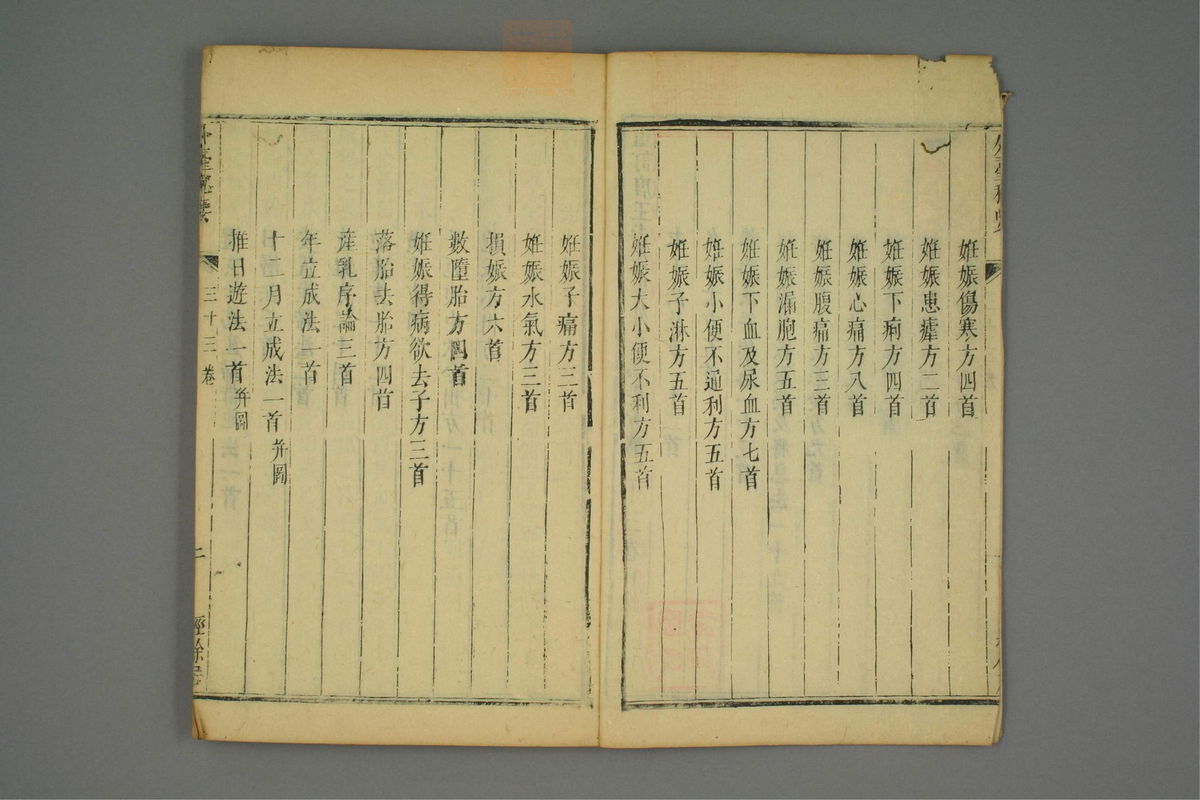 姙娠傷寒方四首
姙娠患瘧方二首
姙娠下痢方四首
姙娠心痛方八首
姙娠腹痛方三首
姙娠漏胞方五首
姙娠下血及尿血方七首
姙娠小便不通利方五首
姙娠子淋方五首
姙娠大小便不利方五首
姙娠子癇方三首
姙娠水氣方三首
損娠方六首
數墮胎方四首
姙娠得病欲去子方三首
落胎去胎方四首
產乳序論三首
年立成法一首
十二月立成法一首并圖
推日遊法一首并圖
外臺秘要
三十三卷
二
經餘居